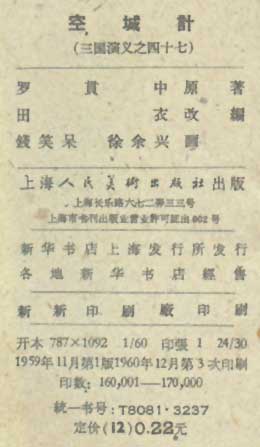 空城計
(三国演义之四十七)
罗貫中原著
田衣改編
錢笑呆 徐余兴画
上海人民美術出版社出版
上海长乐路六七二弄三三号
上海市书刊出版业营业許可証出002号
新华书店上海发行所发行
各地新华书店經售
新新印刷廠印刷
开本 787×1092 1/60 印張 1 24/30
1959年11月第1版1960年12月第3次印刷
印数: 160,001—170,000
統一书号: T8081·3237
定价(12)0.22元